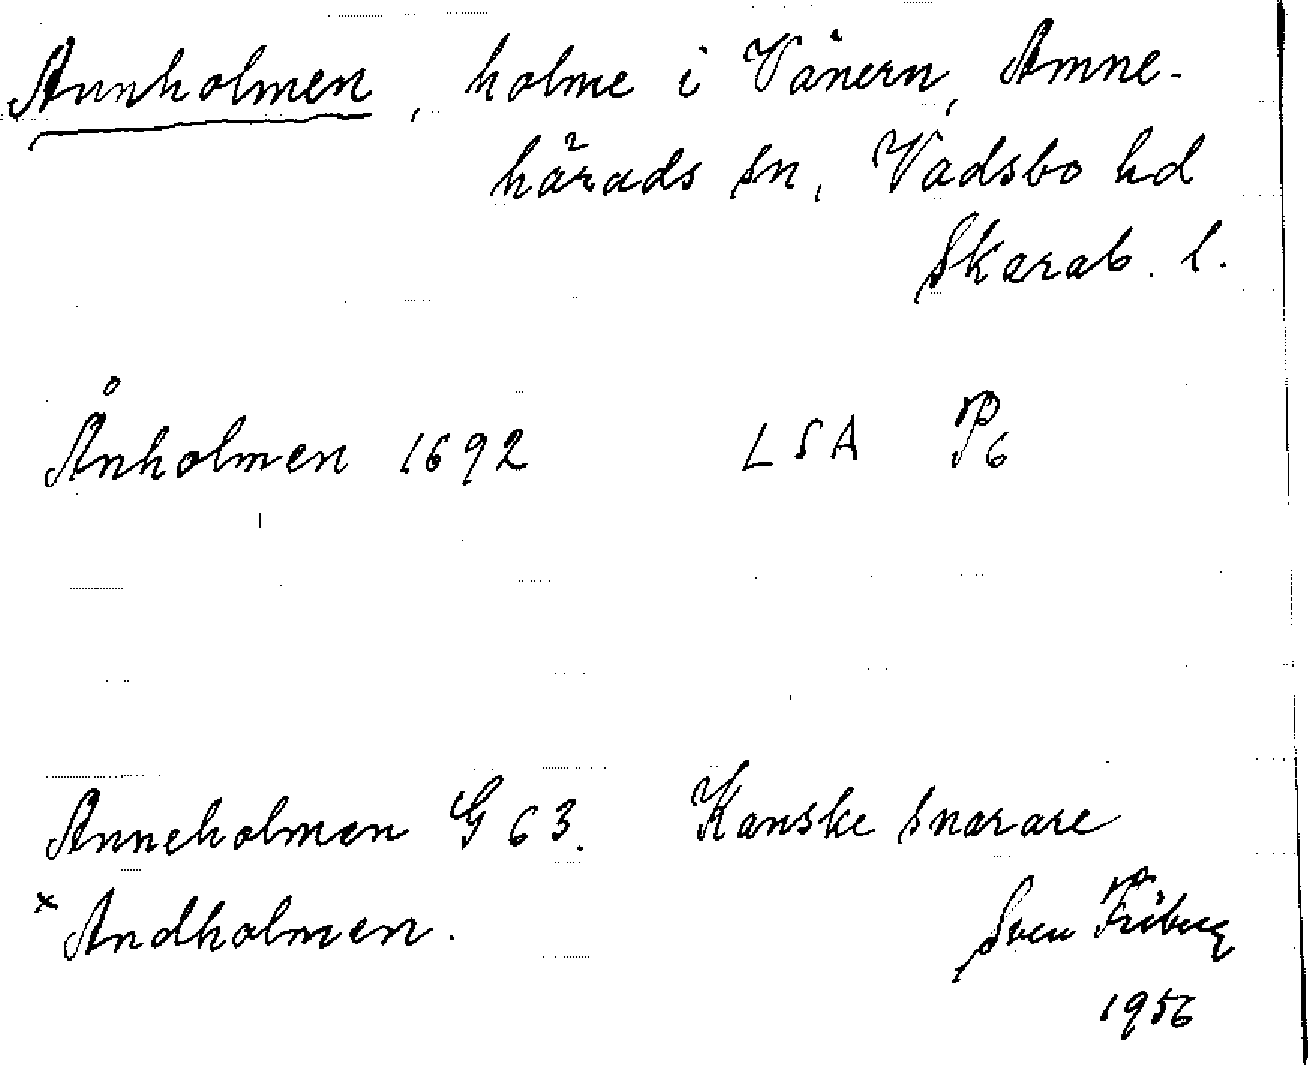 Annholmen, holme i Vänern, Amne-
härads sn, Vadsbo hd
Skarab. l.
Ånholmen 1692 LSA P6
Anneholmen G 63. Kanske snarare
*Andholmen.
Sven Friberg
1956